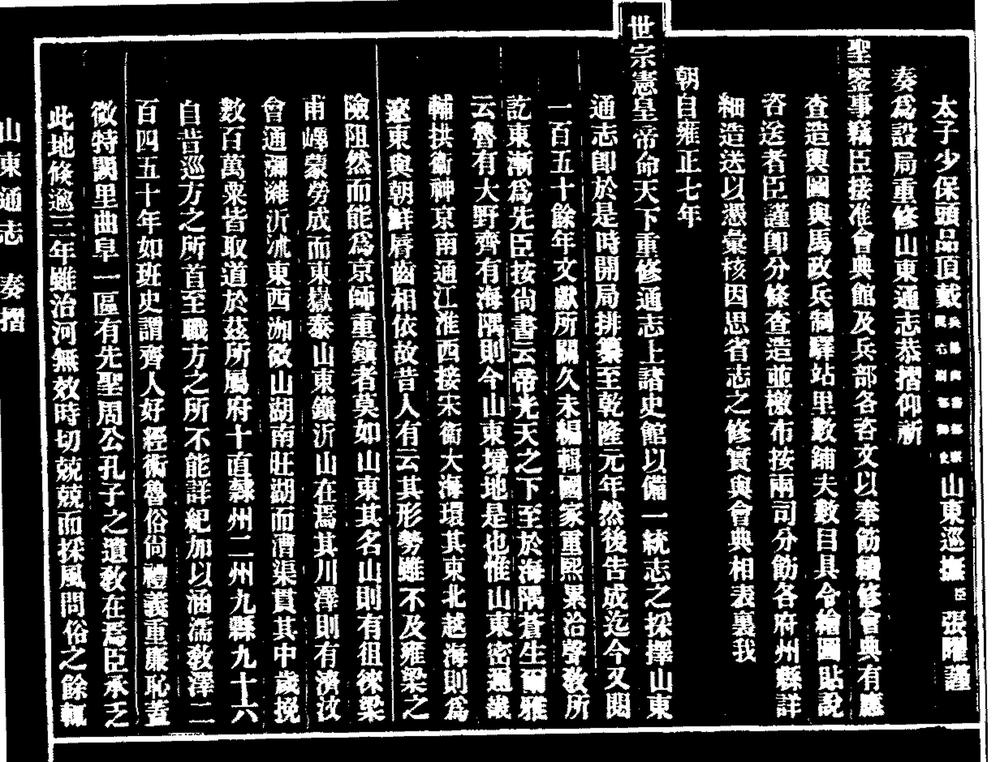 太子少保頭品頂戴兵部尚書都察院右副都御史山東巡撫臣張曜謹
奏爲設局重修山東通志恭摺仰祈
聖鑒事竊臣接准會典館及兵部各咨文以奉飭續修會典有應
查造輿圖與馬政兵制驛站里數鋪夫數目具令繪圖貼說
咨送者臣謹卽分條查造並檄布按兩司分飭各府州縣詳
細造送以憑彙核因思省志之修實與會典相表裏我
朝自雍正七年
世宗憲皇帝命天下重修通志上諸史館以備一統志之採擇山東
通志卽於是時開局排纂至乾隆元年然後告成迄今又閱
一百五十餘年文獻所關久未編輯國家重熙累洽聲敎所
訖東漸爲先臣按尙書云帝光天之下至於海隅蒼生爾雅
云魯有大野齊有海隅則今山東境地是也惟山東密邇畿
輔拱衞神京南通江淮西接宋衞大海環其東北越海則爲
遼東與朝鮮脣齒相依故昔人有云其形勢雖不及雍梁之
險阻然而能爲京師重鎭者莫如山東其名山則有徂徠梁
甫嶧蒙勞成而東嶽泰山東鎭沂山在焉其川澤則有濟汶
會通濰濰沂沭東西泇微山湖南旺湖而漕渠貫其中歲挽
數百萬粟皆取道於茲所屬府十直隸州二州九縣九十六
自昔巡方之所首至職方之所不能詳紀加以涵濡敎澤二
百四五十年如班史謂齊人好經術魯俗尙禮義重廉恥蓋
微特闕里曲阜一區有先聖周公孔子之遺敎在焉臣承乏
此地倐逾三年雖治河無效時切兢兢而採風問俗之餘輒
山東通志 奏摺